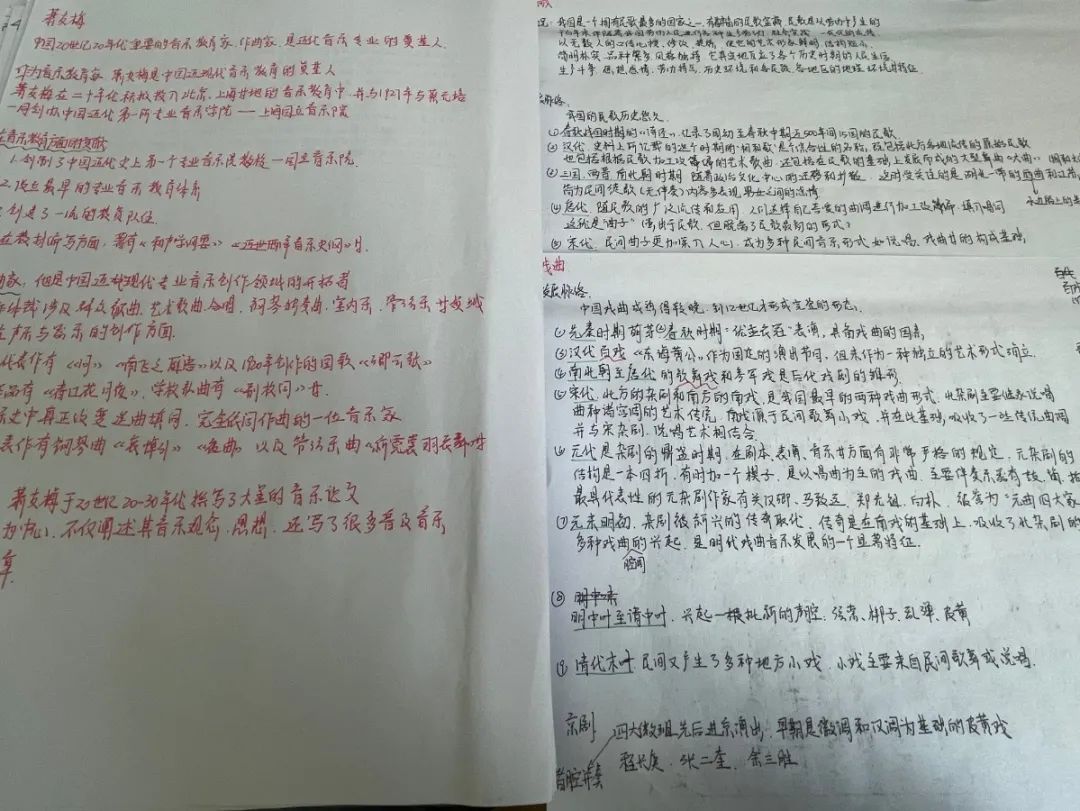 萧友梅
中国20世纪20年代重要的音乐教育家、作曲家、是近代音乐专业的奠基人.
作为音乐教育家 萧友梅是中国近现代音乐教育的奠基人
萧友梅在二十年代积极投入北京、上海等地的音乐教育中,并与1927年与蔡元培
一同创办中国近代第一所专业音乐学院——上海国立音乐院
在音乐教育方面的贡献
1.创制了中国近代史上第一个专业音乐院校——国立音乐院.
2.设立最早的专业音乐教育体系
创建了一流的教员队伍.
在教材编写方面,著有《和声学纲要》《近世西洋音乐史纲》等.
曲家,他是中国近现代专业音乐创作领域的开拓者
体裁涉及群众歌曲、艺术歌曲、合唱、钢琴独奏曲、室内乐、管弦乐等领域
声乐与器乐的创作方面.
代表作有《问》《南飞之雁语》以及1920年创作的国歌《卿云歌》
品有《春江花月夜》,学校歌曲有《别校辞》等.
乐史中真正改变选曲填词,完全依词作曲的一位音乐家
表作有钢琴曲《哀悼引》《夜曲》以及管弦乐曲《新霓裳羽衣舞》等
萧友梅于20世纪20-30年代撰写了大量的音乐论文
为中心,不仅阐述其音乐观念、思想,还写了很多普及音乐
章.
民歌
况:我国是一个拥有民歌最多的国家之一,有着丰富的民歌宝藏
以无数人的口传心授、修改、提炼,使它的艺术形象鲜明、结构短小、
简明朴实、品种繁多、风格独特,它真实地反应了各个历史时期的人民生活
生产斗争、思想感情、劳动情况、历史环境和各民族、各地区的地理环境等特征.
发展脉络.
我国的民歌历史悠久.
① 春秋战国时期的《诗经》,记录了周初至春秋中期近500年间15国的民歌.
② 汉代,史料上所记载的这个时期的"相和歌"是个综合性的名称,既包括秦汉后各地流传的原始民歌
也包括根据民歌加工改编的艺术歌曲,还包括在民歌的基础上发展而成的大型舞曲《大曲》
③ 三国、两晋、南北朝时期 随着政治文化中心的迁移和扩散
皆为民间徒歌(无伴奏)内容多表现男女之间的恋情
④ 唐代,随民歌的广泛流传和应用,人们选择自己喜爱的曲调进行加工改编,填入唱词
这就是"曲子"(虽出于民歌,但脱离了民歌最初的形式)
⑤ 宋代,民间曲子更加深入人心,成为多种民间音乐形式如说唱、戏曲等的构成基础.
戏曲
发展脉络.
中国戏曲成形得较晚,到12世纪才形成完整的形态.
① 先秦时期萌芽②春秋时期"优孟衣冠"表演,具备戏曲的因素.
③ 汉代百戏《东海黄公》作为固定的演出节目,但未作为一种独立的艺术形式确立.
④ 南北朝至唐代的歌舞戏和参军戏是后代戏剧的雏形.
⑤ 宋代,北方的杂剧和南方的南戏,是我国最早的两种戏曲形式.北杂剧主要继承说唱
曲种诸宫调的艺术传统,南戏源于民间歌舞小戏,并在此基础,吸收了一些传统曲调
并与宋杂剧、说唱艺术相结合.
⑥ 元代是杂剧的鼎盛时期,在剧本、表演、音乐等方面有非常严格的规定,元杂剧的
结构是一本四折,有时加一个楔子,是以唱曲为主的戏曲,主要伴奏乐器有鼓、笛、拍
最具代表性的元杂剧作家有关汉卿、马致远、郑光祖、白朴,被誉为"元曲四大家
⑦ 元末明初,杂剧被新兴的传奇取代,传奇是在南戏的基础上,吸收了北杂剧的
多种戏曲的兴起,是明代戏曲音乐发展的一个显著特征.
腔调
⑧ 明中末
明中叶至清中叶,兴起一批新的声腔:弦索、梆子、乱弹、皮黄
⑨ 清代末叶 民间又产生了多种地方小戏,小戏主要来自民间歌舞或说唱.
京剧
四大徽班先后进京演出,早期是徽调和汉调为基础的皮黄戏
程长庚、张二奎、余三胜